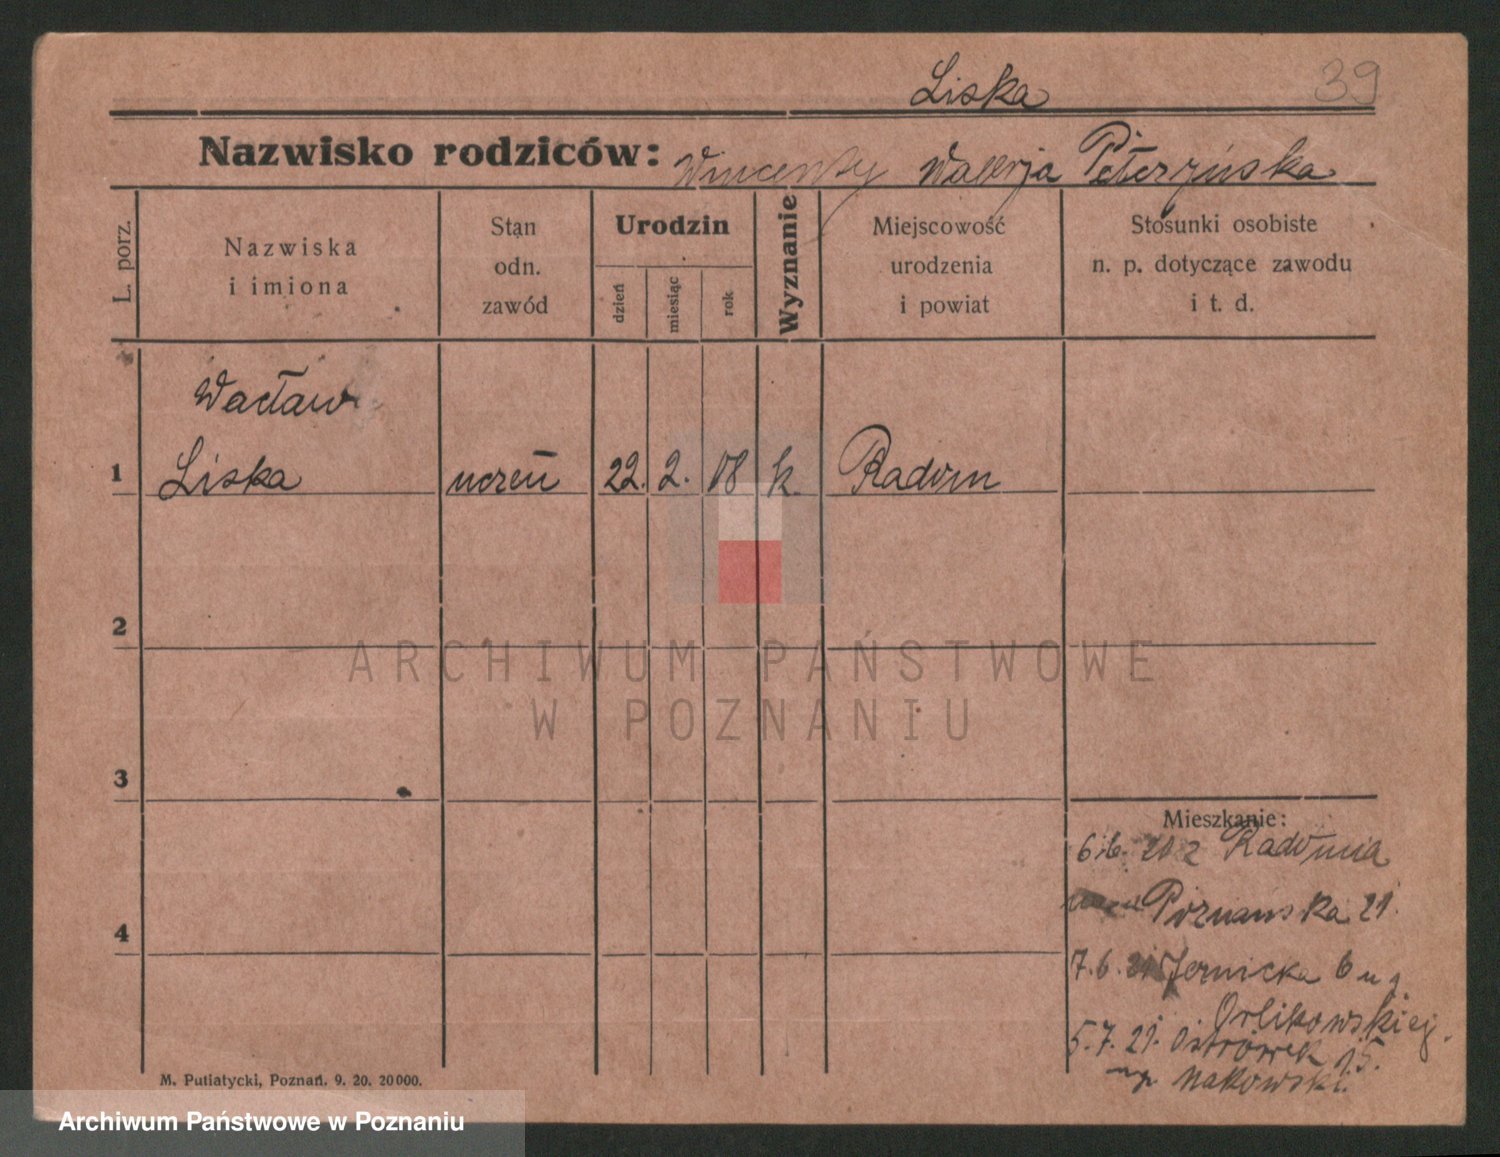 Liska 39
Nazwisko rodziców: Wincenty Walerja Peterzńska
L. porz.
Nazwiska
i imiona
Stąn
odn.
zawód
Urodzin
dzień
miesiąc
rok
Wyznanie
Miejscowość
urodzenia
i powiat
Stosunki osobiste
n. p. dotyczące zawodu
i t. d.
Wacław
1 Liska uczeń 22. 2. 08 k. Radom
2
3
4
Mieszkanie:
6.6. 21 z Radomia
Poznańska 21.
7.6. 21 6 u p.
Orlikowskiej.
5.7. 21. Ostrówek 15.
Makowski.
M. Putiatycki, Poznań. 9. 20. 20000.
ARCHIWUM PAŃSTWOWE
W POZNANIU
Archiwum Państwowe w Poznaniu